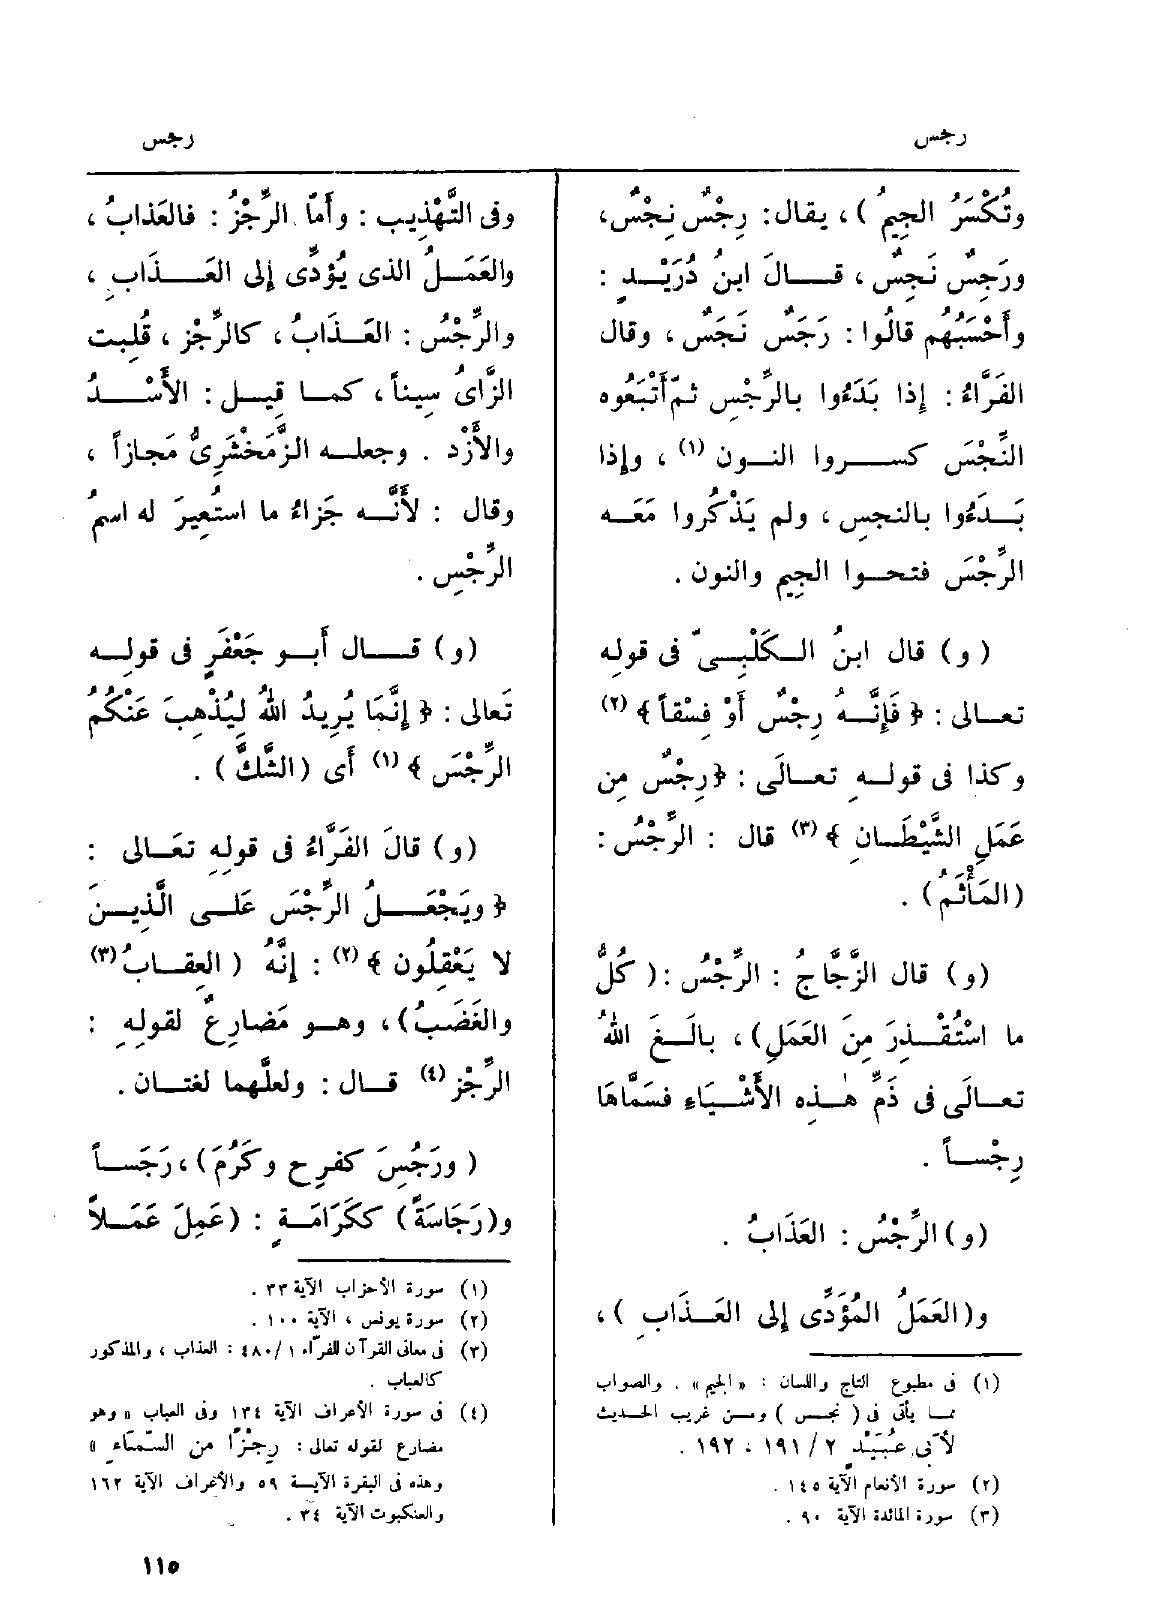 رجس
رجس
وتُكْسَرُ الجِيمُ )، يقال: رِجْسٌ نِجْسٌ،
ورَجِسٌ نَجِسٌ ، قـال ابنُ دُرَيْـدٍ :
وأَحْسَبُهُم قالُوا : رَجَسٌ نَجَسٌ ، وقال
الفَرَّاءُ : إذا بَدَءُوا بالرِّجْسِ ثمّ أَتْبَعُوه
النِّجْسَ كسـروا النـون (١) ، وإذا
بَـدَءُوا بالنجسِ ، ولم يَذْكُروا مَعَـه
الرِّجْسَ فتحـوا الجِيم والنون .
( و) قال ابنُ الـكَلْبِـيّ فى قولِه
تعـالى : ﴿ فَإِنَّـهُ رِجْسٌ أَوْ فِسْقاً ﴾ (٢)
وكذا فى قولـهِ تعـالَى : ﴿رِجْسٌ مِن
عَمَلِ الشَّيْطَـانِ ﴾ (٣) قال : الرِّجْسُ :
(المَأْثَمُ) .
(و) قال الزَّجَّاجُ : الرِّجْسُ : ( كُلُّ
ما اسْتُقْـذِرَ مِنَ العَمَلِ) ، بالَـغَ اللهُ
تعـالَى فى ذَمِّ هٰـذِه الأَشْيَـاءِ فسَمَّاهَا
رِجْسـاً .
(و) الرِّجْسُ : العَذَابُ .
و(العَمَلُ المُؤَدِّى إلى العَـذَابِ ) ،
(١) فى مطبوع التاج واللسان : « الجيم » . والصواب
ممـا يأتى فى ( نجـس ) ومـن غريب الحديث
لأبى عُبَيْدٍ ٢ / ١٩١ ، ١٩٢ .
(٢) سورة الأنعام الآية ١٤٥ .
(٣) سورة المائدة الآية ٩٠ .
وفى التَّهْذِيب : وأَمّا الرِّجْزُ : فالعَذابُ ،
والعَمَـلُ الذى يُؤدِّى إلى العَـذَابِ ،
والرِّجْسُ : العَـذَابُ ، كالرِّجْز ، قُلِبت
الزّاىُ سِيناً ، كمـا قِيـل : الأَسْـدُ
والأَزْد . وجعلـه الزَّمَخْشَرِىُّ مَجازاً ،
وقال : لأَنَّـه جَزاءُ ما استُعِيرَ له اسمُ
الرِّجْسِ .
(و) قـال أَبـو جَعْفَرٍ فى قولِـه
تَعالى : ﴿ إنَّمَا يُرِيدُ اللهُ لِيُذْهِبَ عَنْكُمُ
الرِّجْسَ ﴾ (١) أَى (الشَّكَّ) .
(و) قالَ الفَرَّاءُ فى قولِهِ تعَـالى :
﴿ ويَجْعَـلُ الرِّجْسَ عَلـى الَّذِيـنَ
لا يَعْقِلُون ﴾ (٢) : إنَّهُ ( العِقـابُ (٣)
والغَضَبُ)، وهـو مَضارِعٌ لقولِهِ :
الرِّجْز (٤) قـال : ولعلَّهما لغتـان .
( ورَجُسَ كفرِح وكَرُمَ ) ، رَجَسـاً
و(رَجَاسَةً) ككَرَامَـةٍ : (عَمِلَ عَمَـلاً
(١) سورة الأحزاب الآية ٣٣ .
(٢) سورة يونس ، الآية ١٠٠ .
(٣) فى معانى القرآن للفرّاء ١ /٤٨٠ : العذاب ، والمذكور
كالعباب .
(٤) فى سورة الأعراف الآية ١٣٤ وفى العباب « وهو
مضارع لقوله تعالى : رِجْزًا من السّمَاءِ »
وهذه فى البقرة الآيـة ٥٩ والأعراف الآية ١٦٢
والعنكبوت الآية ٣٤ .
١١٥